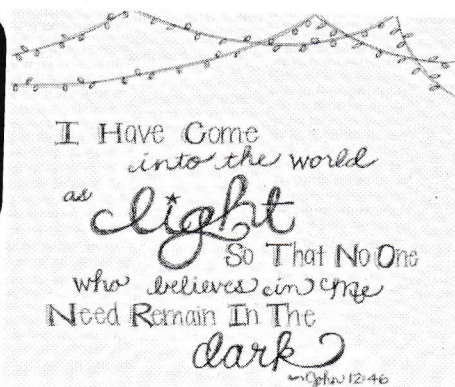 I Have Come
into the world
as
light
So That No One
who believes in me
Need Remain In The
dark
~John 12:46